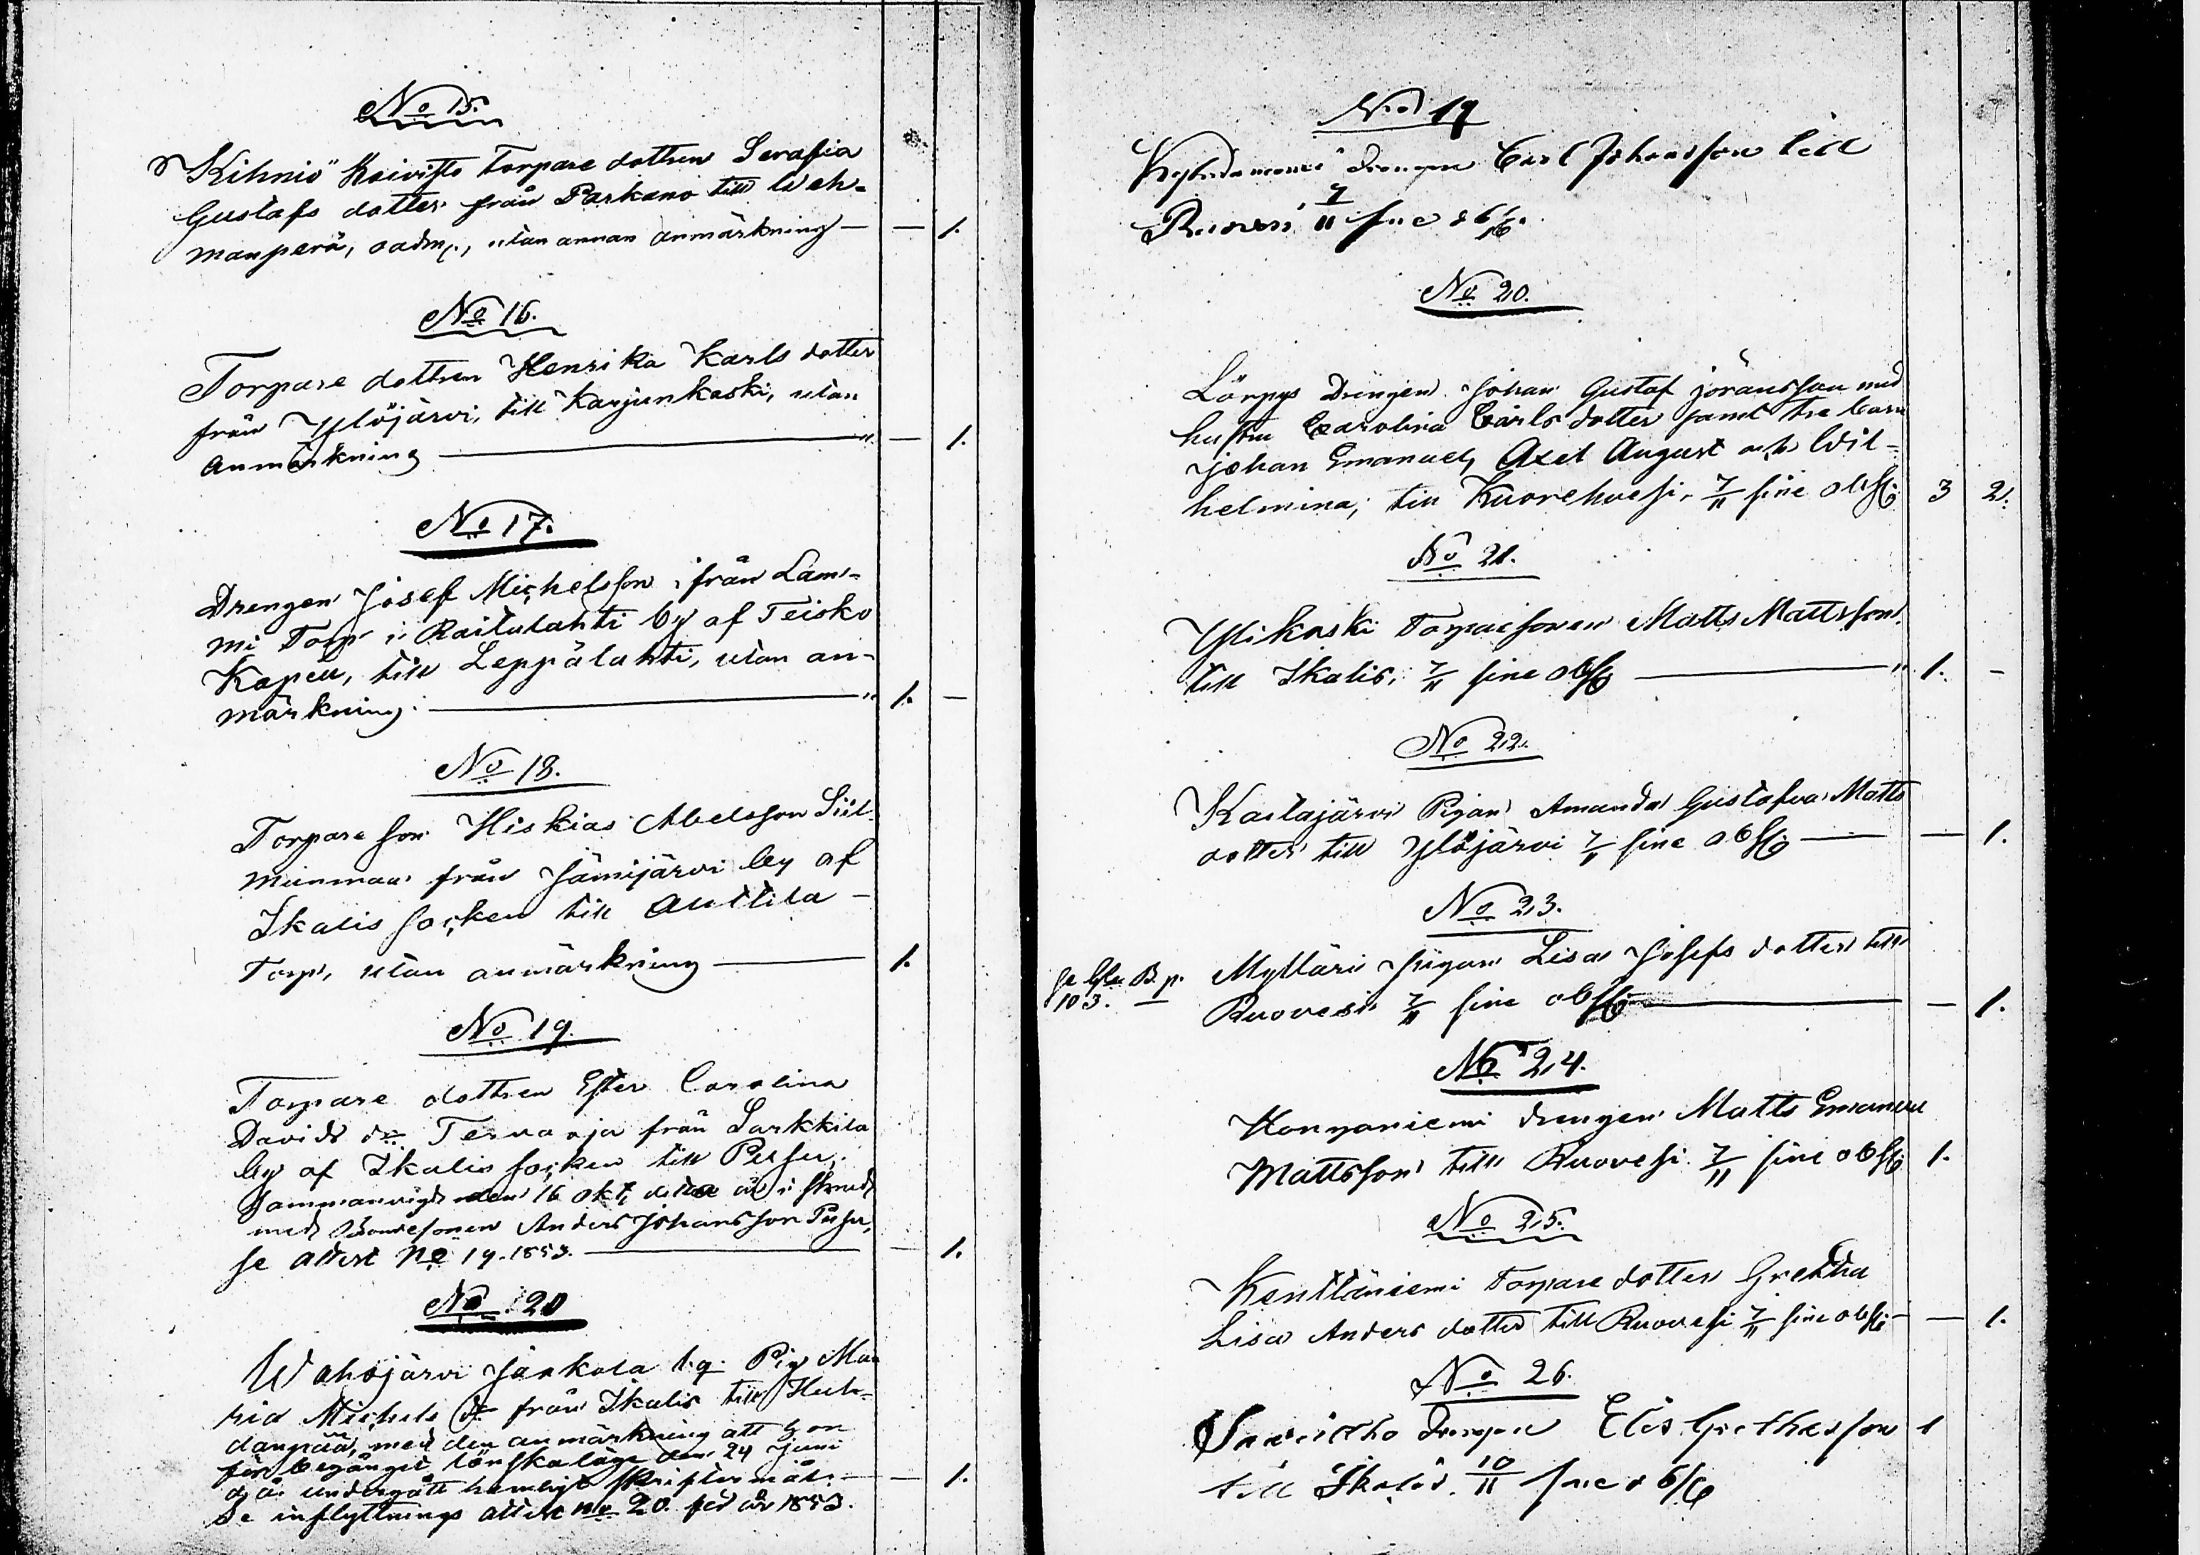 No 15.
Kihniö Koivisto Torpare dottren Serafia
Gustafs dotter från Parkano till Weh-
manperä, oadm., utan annan anmärkning — — 1.
No 16.
Torpare dottren Henrika Karls dotter
från Ylöjärvi, till Karjunkoski, utan
anmärkning — " — 1.
No 17.
Drengen Josef Michelsson från Lam-
mi Torp i Raitulahti by af Teisko
Kapell, till Leppälahti, utan an-
märkning. — " 1. —
No 18.
Torpare son Hiskias Abelsson Siil-
from Jämijärvi by af
Ikalis socken till Anttila
Torp, utan anmärkning — 1.
No 19.
Torpare dottren Ester Carolina
Davids dr Tervaoja från Sarkkila
by af Ikalis socken till
Sammanvigd den 16 okt detta år i
med Bondesonen Anders Johansson
se attest No 19. 1853. — — 1.
No 20
Wahojärvi Jankola Pig Ma-
ria Michels dr från Ikalis till Huh-
danpää, med den anmärkning att hon
för begånget lönskaläge den 24 Juni
d. å. undergått hemligt skriftermål. — — 1.
Se inflyttnings attest No 20. för år 1853.
No 19
drengen Carl Johansson till
Ruovesi 7/11 sine obs.
No 20.
drengen Johan Gustaf Joransson med
hustru Carolina Carls dotter samt tre barn
Johan Emanuel, Axel August och Wil-
helmina, till Kuorehvesi, 7/11 sine obss 3 2.
No 21.
Ylikoski Torparesonen Matts Mattsson
till Ikalis, 7/11 sine obss — " 1. -
No 22.
Kaitajärvi Pigan Amanda Gustafva Matts
dotter till Ylöjärvi 7/11 sine obss — — 1.
No 23.
Mylläri pigan Lisa Josefs dotter till
se B. p.
103. Ruovesi 7/11 sine obss — — 1.
No 24.
Honganiemi drengen Matts Emanuel
Mattsson till Ruovesi 7/11 sine obss 1.
No 25.
Kenttäniemi Torpare dotter Gretha
Lisa Anders dotter till Ruovesi 7/11 sine obss — — 1.
No 26.
drengen Elis Grethasson 1
till Ikalis. 10/11 sine obs